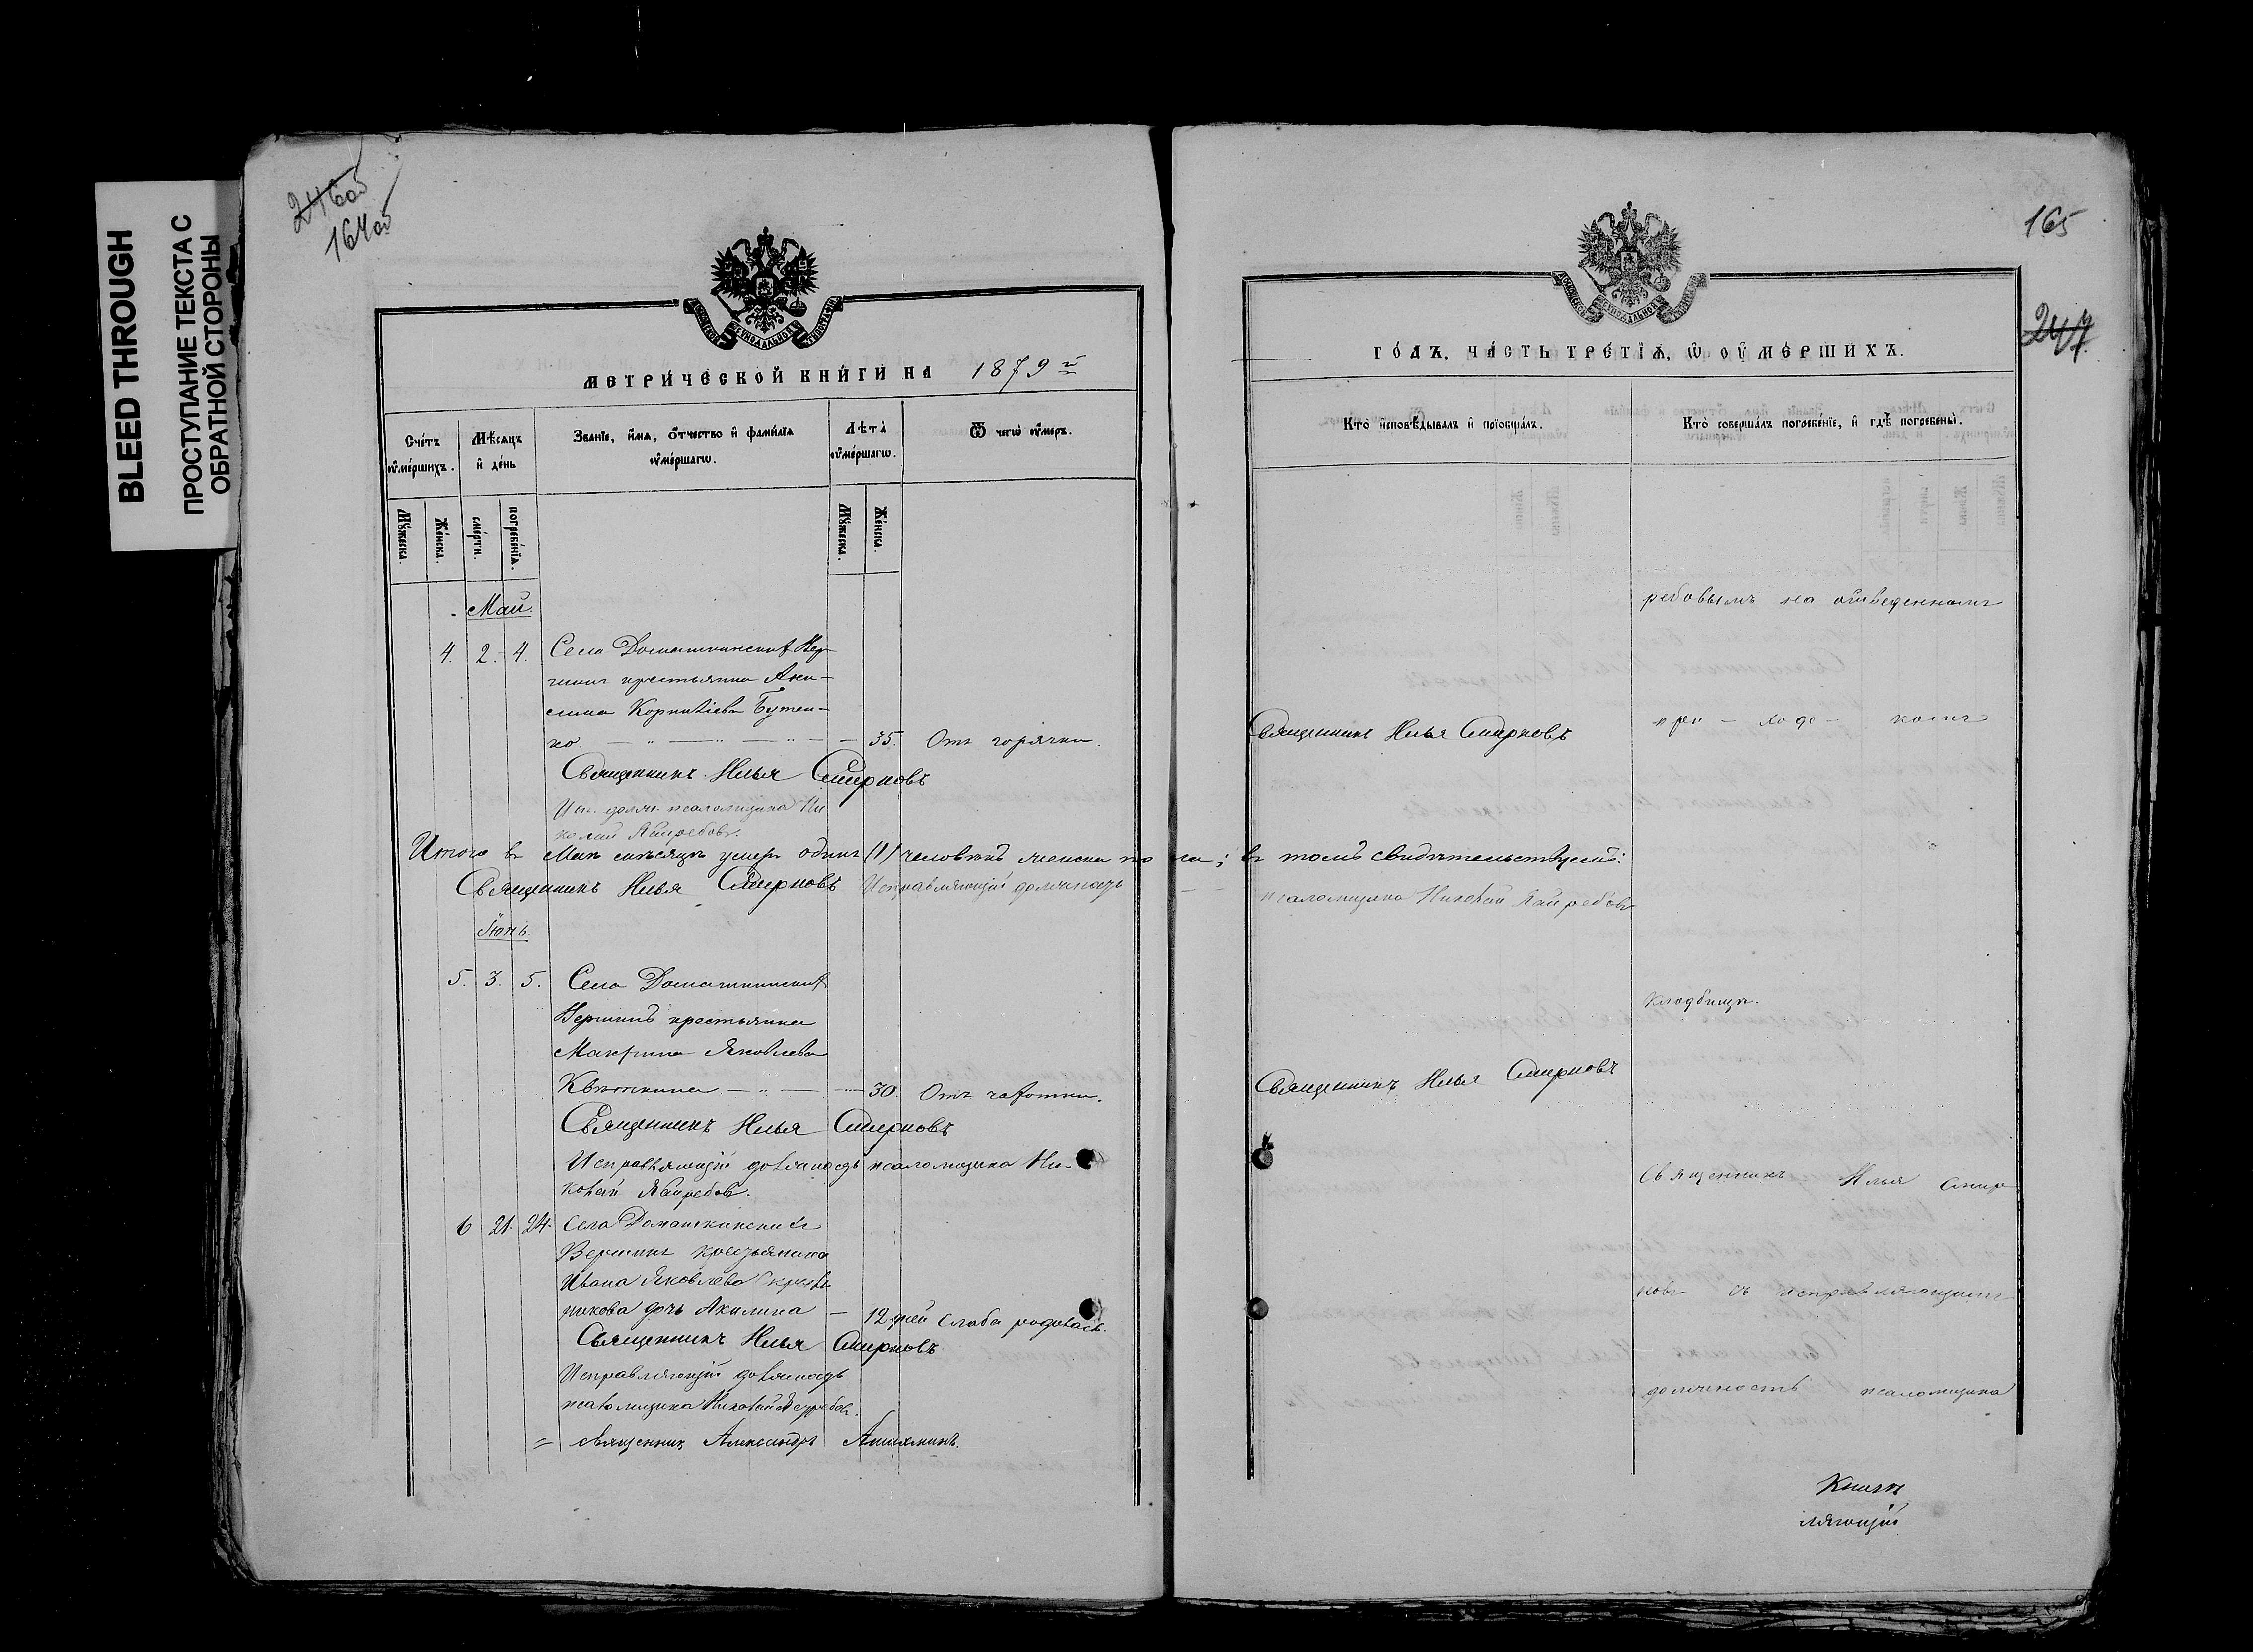 BLEED THROUGH
ПРОСТУПАНИЕ ТЕКСТА С
ОБРАТНОЙ СТОРОНЫ
246об
164об
МЕТРИЧЕСКОЙ КНИГИ НА 1879й
Счетъ умершихъ.
Мѣсяцъ и день
Званіе, имя, отчество и фамилія умершагѡ.
Лѣта умершагѡ.
Ѿ чегѡ умеръ.
Мужеска.
Женска.
смерти.
погребенія.
Мужеска.
Женска.
Май.
4. 2. 4. Села Домашкинскихъ Вер-
шинъ крестьянка Аки-
лина Корнилiева Бутен-
ко. 35. Отъ горячки.
Священникъ Илья Смирновъ
Исп. долж. псаломщика Ни
колай Ястребовъ.
Итого въ Маѣ мѣсяцѣ умеръ одинъ (1) человѣкъ женска пола; въ томъ свидѣтельствуемъ:
Священникъ Илья Смирновъ Исправляющій должность
Iюнь.
5. 3. 5. Села Домашкинскихъ
Вершинъ крестьянка
Макрина Яковлева
Квѣткина 30. Отъ чахотки.
Священникъ Илья Смирновъ
Исправляющій должность псаломщика Ни-
колай Ястребовъ.
6 21. 24. Села Домашкинскихъ
Вершинъ крестьянина
Ивана Яковлева
дочь Акилина 12 дней Слаба родилась.
Священникъ Илья Смирновъ
Исправляющій должность
псаломщика Николай Ястребовъ.
Священник Александръ
165
247
ГОДЪ, ЧАСТЬ ТРЕТІЯ, Ѡ УМЕРШИХЪ.
Кто исповѣдывалъ и пріобщалъ.
Кто совершалъ погребеніе, и гдѣ погребены.
ребовымъ на отведенномъ
Священникъ Илья Смирновъ
при – ходс – комъ
псаломщика Николай Ястребовъ
кладбищѣ.
Священникъ Илья Смирновъ
Священникъ Илья Смир
новъ съ исправляющимъ
должность псаломщика
Книги
ляющій